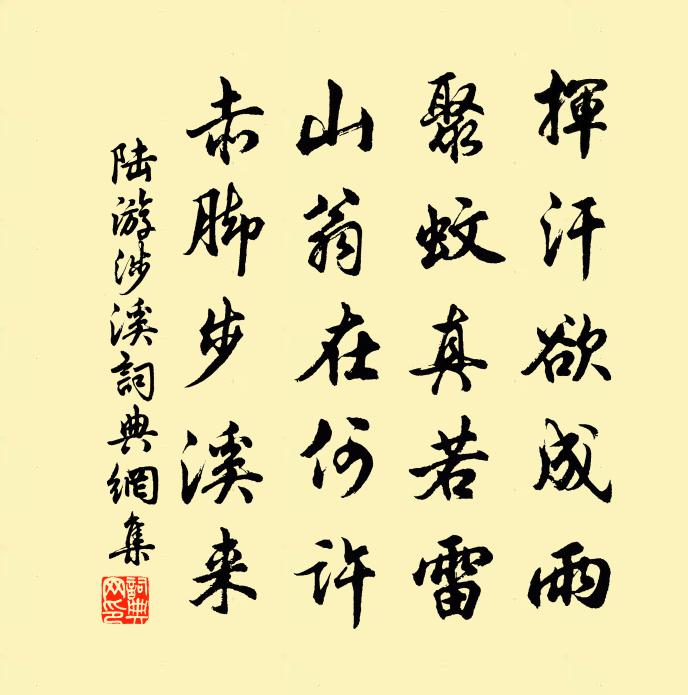 揮汗欲成雨
聚蚊真若雷
山翁在何許
赤脚步溪来
陆游涉溪詞典網集
詞典網印